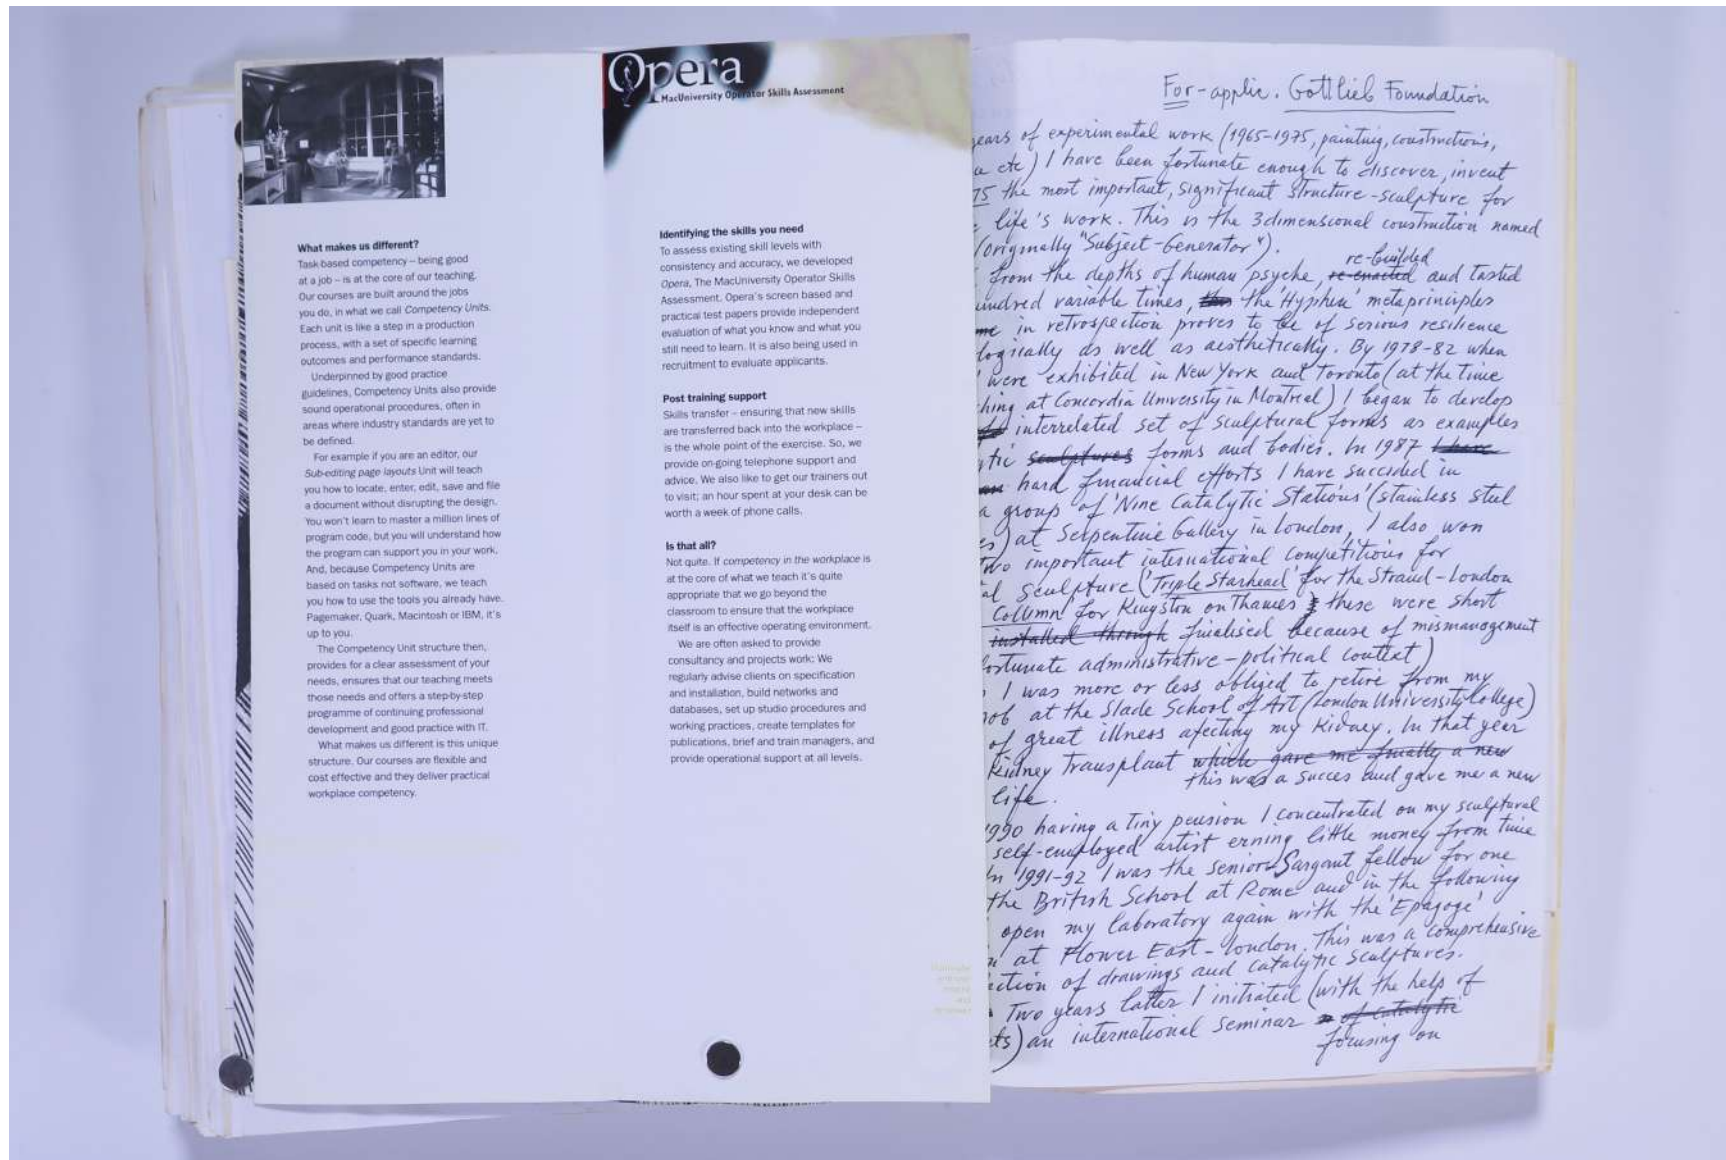 Opera
MacUniversity Operator Skills Assessment
What makes us different?
Task-based competency – being good
at a job – is at the core of our teaching.
Our courses are built around the jobs
you do, in what we call Competency Units.
Each unit is like a step in a production
process, with a set of specific learning
outcomes and performance standards.
Underpinned by good practice
guidelines, Competency Units also provide
sound operational procedures, often in
areas where industry standards are yet to
be defined.
For example if you are an editor, our
Sub-editing page layouts Unit will teach
you how to locate, enter, edit, save and file
a document without disrupting the design.
You won't learn to master a million lines of
program code, but you will understand how
the program can support you in your work.
And, because Competency Units are
based on tasks not software, we teach
you how to use the tools you already have.
Pagemaker, Quark, Macintosh or IBM, it's
up to you.
The Competency Unit structure then,
provides for a clear assessment of your
needs, ensures that our teaching meets
those needs and offers a step-by-step
programme of continuing professional
development and good practice with IT.
What makes us different is this unique
structure. Our courses are flexible and
cost effective and they deliver practical
workplace competency.
Identifying the skills you need
To assess existing skill levels with
consistency and accuracy, we developed
Opera, The MacUniversity Operator Skills
Assessment. Opera's screen based and
practical test papers provide independent
evaluation of what you know and what you
still need to learn. It is also being used in
recruitment to evaluate applicants.
Post training support
Skills transfer – ensuring that new skills
are transferred back into the workplace –
is the whole point of the exercise. So, we
provide on-going telephone support and
advice. We also like to get our trainers out
to visit; an hour spent at your desk can be
worth a week of phone calls.
Is that all?
Not quite. If competency in the workplace is
at the core of what we teach it's quite
appropriate that we go beyond the
classroom to ensure that the workplace
itself is an effective operating environment.
We are often asked to provide
consultancy and projects work: We
regularly advise clients on specification
and installation, build networks and
databases, set up studio procedures and
working practices, create templates for
publications, brief and train managers, and
provide operational support at all levels.
For-applic. Gottlieb Foundation
ears of experimental work (1965-1975, painting, constructions,
etc) I have been fortunate enough to discover, invent
75 the most important, significant structure-sculpture for
life's work. This is the 3dimensional construction named
(originally "Subject-Generator").
re-builded
from the depths of human psyche, re-enacted and tasted
undred variable times, the 'Hyphen' metaprinciples
in retrospection proves to be of serious resilience
logically as well as aesthetically. By 1978-82 when
were exhibited in New York and Toronto (at the time
hing at Concordia University in Montreal) I began to develop
interrelated set of sculptural forms as examples
tic sculptures forms and bodies. In 1987 I have
hard financial efforts I have succided in
a group of 'Nine Catalytic Stations' (stainless steel
es) at Serpentine Gallery in London, I also won
two important international competitions for
al sculpture ('Triple Starhead' for the Strand-London
Column' for Kingston on Thames) these were short
installed through finalised because of mismanagement
ortunate administrative-political context)
I was more or less obliged to retire from my
job at the Slade School of Art (London University College)
of great illness afecting my Kidney. In that year
Kidney Transplant which gave me finally a new
this was a succes and gave me a new
life.
1990 having a tiny pension I concentrated on my sculptural
self-employed artist erning little money from time
In 1991-92 I was the senior Sargant fellow for one
the British School at Rome and in the following
open my laboratory again with the 'Epagoge'
at Flower East-London. This was a comprehensive
ction of drawings and catalytic sculptures.
Two years latter I initiated (with the help of
ts) an international seminar of catalytic
focusing on